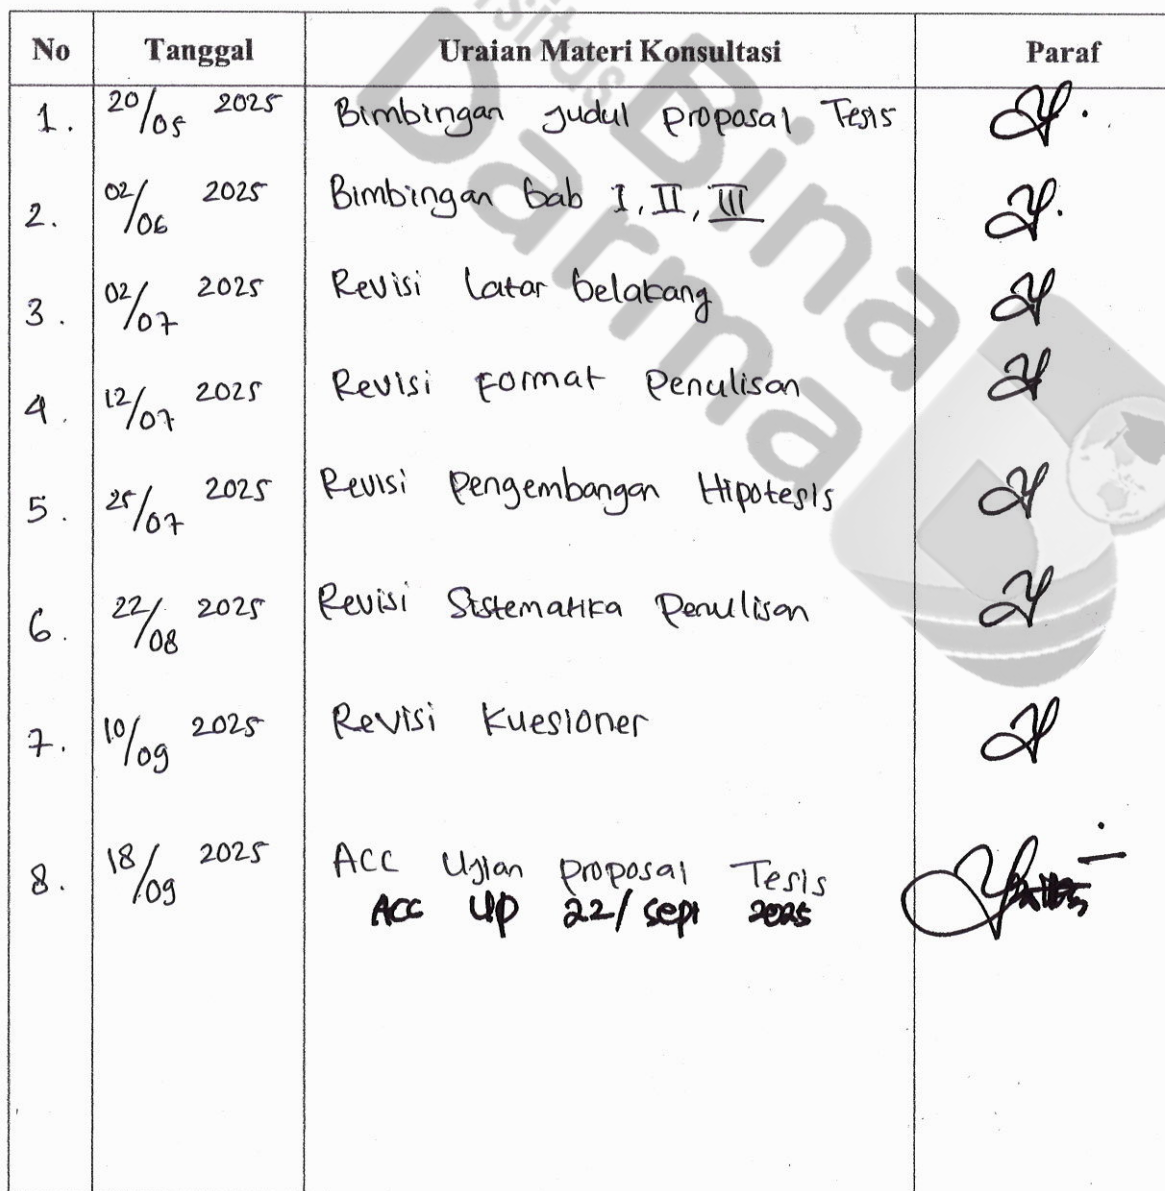 Universitas
Bina
Darma
No Tanggal Uraian Materi Konsultasi Paraf
1. 20/05 2025 Bimbingan Judul proposal Tesis
2. 02/06 2025 Bimbingan bab I, II, III
3. 02/07 2025 Revisi Latar belakang
4. 12/07 2025 Revisi Format Penulisan
5. 25/07 2025 Revisi Pengembangan Hipotesis
6. 22/08 2025 Revisi Sistematika Penulisan
7. 10/09 2025 Revisi Kuesioner
8. 18/09 2025 ACC Ujian proposal Tesis
ACC UP 22/ Sept 2025